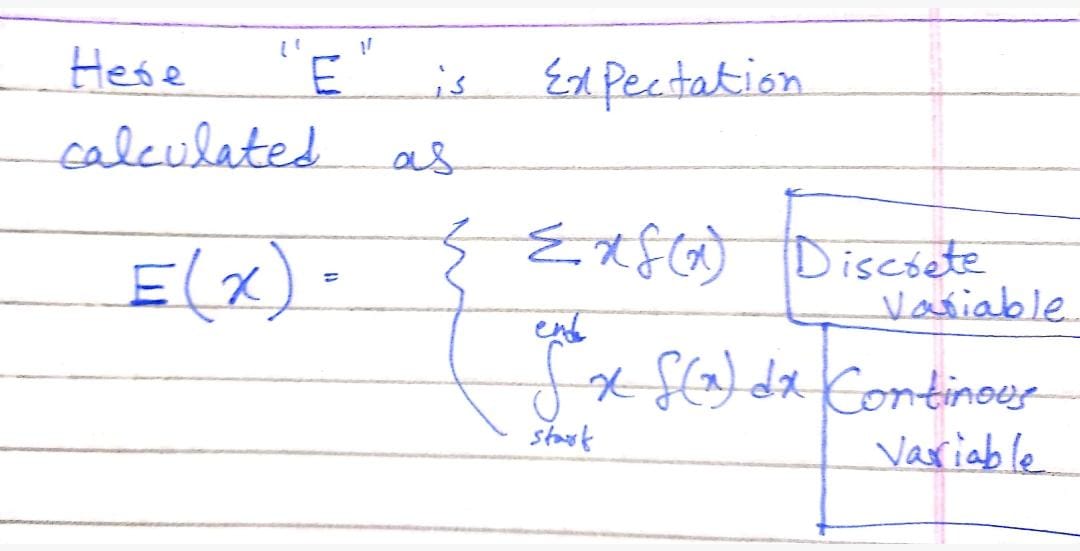 Here "E" is Expectation
calculated as
E(x) = { Σ x f(x) Discrete
Variable
end
∫ x f(x) dx Continous
start
Variable